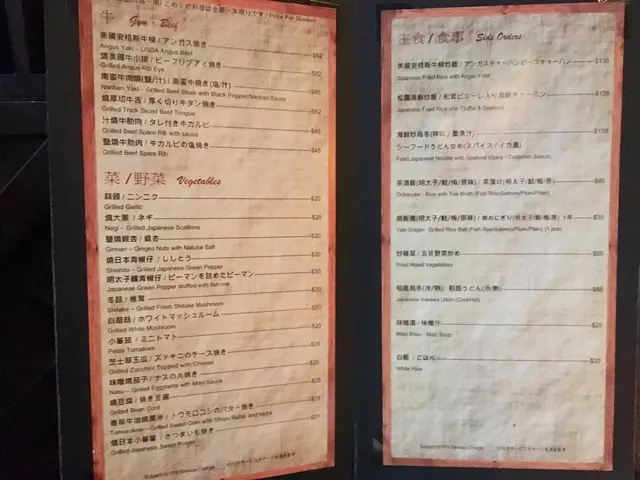 牛 Gyu - Beef
美國安格斯牛柳 / アンガス焼き
Angus Yaki - USDA Angus Beef $62
燒美國牛小排 / ビーフリブアイ焼き
Grilled Angus Rib Eye $52
南蛮牛肉燒(鹽/汁) / 南蛮牛焼き(塩/汁)
Nanban Yaki - Grilled Beef Steak with Black Pepper/Nanban Sauce $45
燒厚切牛舌 / 厚く切り牛タン焼き
Grilled Thick Sliced Beef Tongue $62
汁燒牛肋肉 / タレ付き牛カルビ
Grilled Beef Spare Rib with sauce $45
鹽燒牛肋肉 / 牛カルビの塩焼き
Grilled Beef Spare Rib $45
菜 / 野菜 Vegetables
蒜頭 / ニンニク $20
Grilled Garlic
燒大蔥 / ネギ $20
Negi - Grilled Japanese Scallions
鹽燒銀杏 / 銀杏 $20
Ginnan - Gingko Nuts with Natural Salt
燒日本青椒仔 / ししとう $30
Shishito - Grilled Japanese Green Pepper
明太子釀青椒仔 / ピーマンを詰めたピーマン $30
Japanese Green Pepper stuffed with fish roe
冬菇 / 椎茸 $20
Shiitake - Grilled Fresh Shiitake Mushroom
白蘑菇 / ホワイトマッシュルーム $20
Grilled White Mushroom
小蕃茄 / ミニトマト $20
Petite Tomatoes
芝士翠玉瓜 / ズッキニのチーズ焼き $28
Grilled Zucchini Topped with Cheese
味噌燒茄子 / ナスの丸焼き $20
Nasu - Grilled Eggplants with Miso Sauce
燒豆腐 / 焼き豆腐 $20
Grilled Bean Curd
香草牛油燒粟米 / トウモロコシのバター焼き $28
Tomorokoshi - Grilled Sweet Corn with Shoyu Butter and herbs
燒日本小蕃薯 / さつまいも焼き $25
Grilled Japanese Sweet Potato
Subject to 10% Service Charge 10%のサービスチャージを頂きます
主食 / 食事 Side Orders
美國安格斯牛柳炒飯 / アンガスチャーハンビーフチャーハン $138
Japanese Fried Rice with Angus Beef
松露海鮮炒飯 / 松茸ピューレ入り海鮮チャーハン $138
Japanese Fried Rice with Truffle & Seafood
海鮮炒烏冬(辣味 / 墨魚汁) $138
シーフードうどん炒め(スパイス / イカ墨)
Fried Japanese Noodle with Seafood (Spicy / Cuttlefish Sauce)
茶漬飯(明太子/鮭/梅/原味) / 茶漬け(明太子/鮭/梅/原) $60
Ochazuke - Rice with Tea Broth (Fish Roe/Salmon/Plum/Plain)
燒飯團(明太子/鮭/梅/原味) / 焼おにぎり(明太子/鮭/梅/原) 1本 $30
Yaki Onigiri - Grilled Rice Ball (Fish Roe/Salmon/Plum/Plain) (1 pcs)
炒雜菜 / 五目野菜炒め $60
Fried Mixed Vegetables
稻庭烏冬(冷/熱) / 稻庭うどん(冷/熱) $68
Japanese Inaniwa Udon (Cold/Hot)
味噌湯 / 味噌汁 $28
Miso Shiru - Miso Soup
白飯 / ごはん $20
White Rice
Subject to 10% Service Charge 10%のサービスチャージを頂きます